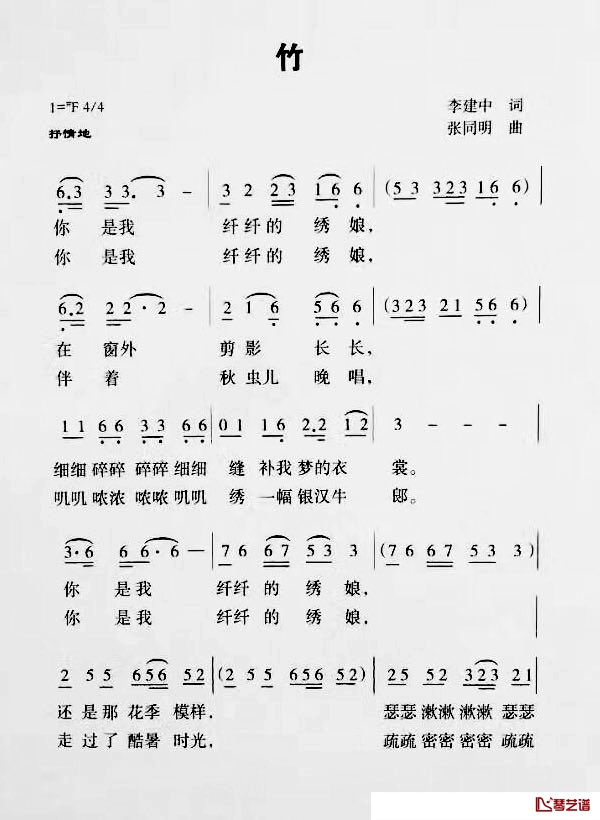 竹
1=#F 4/4
李建中 词
抒情地
张同明 曲
6.3 3 3. 3 - | 3 2 2 3 1 6 6 | (5 3 3 2 3 1 6 6)
你 是我 纤纤的 绣 娘,
你 是我 纤纤的 绣 娘,
6.2 2 2·2 - | 2 1 6 5 6 6 | (3 2 3 2 1 5 6 6)
在 窗外 剪影 长长,
伴 着 秋虫儿 晚唱,
1 1 6 6 3 3 6 6 | 0 1 1 6 2.2 1 2 | 3 - -
细细 碎碎 碎碎 细细 缝 补我 梦的衣 裳。
叽叽 哝浓 哝哝 叽叽 绣 一幅 银汉牛 郎。
3·6 6 6·6 — | 7 6 6 7 5 3 3 | (7 6 6 7 5 3 3)
你 是我 纤纤的 绣娘,
你 是我 纤纤的 绣娘,
2 5 5 6 5 6 5 2 | (2 5 5 6 5 6 5 2) | 2 5 5 2 3 2 3 2 1
还 是那 花季 模样, 瑟瑟 漱漱 漱漱 瑟瑟
走 过了 酷暑 时光, 疏疏 密密 密密 疏疏
琴艺谱